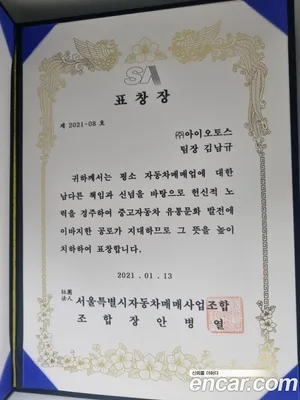 SA
표창장
제 2021-08 호
㈜아이오토스
팀장 김남규
귀하께서는 평소 자동차매매업에 대한
남다른 책임과 신념을 바탕으로 헌신적 노
력을 경주하여 중고자동차 유통문화 발전에
이바지한 공로가 지대하므로 그 뜻을 높이
치하하여 표창합니다.
2021.01.13
社團法人 서울특별시자동차매매사업조합
조합장 안병열
신뢰를 더하다
encar.com